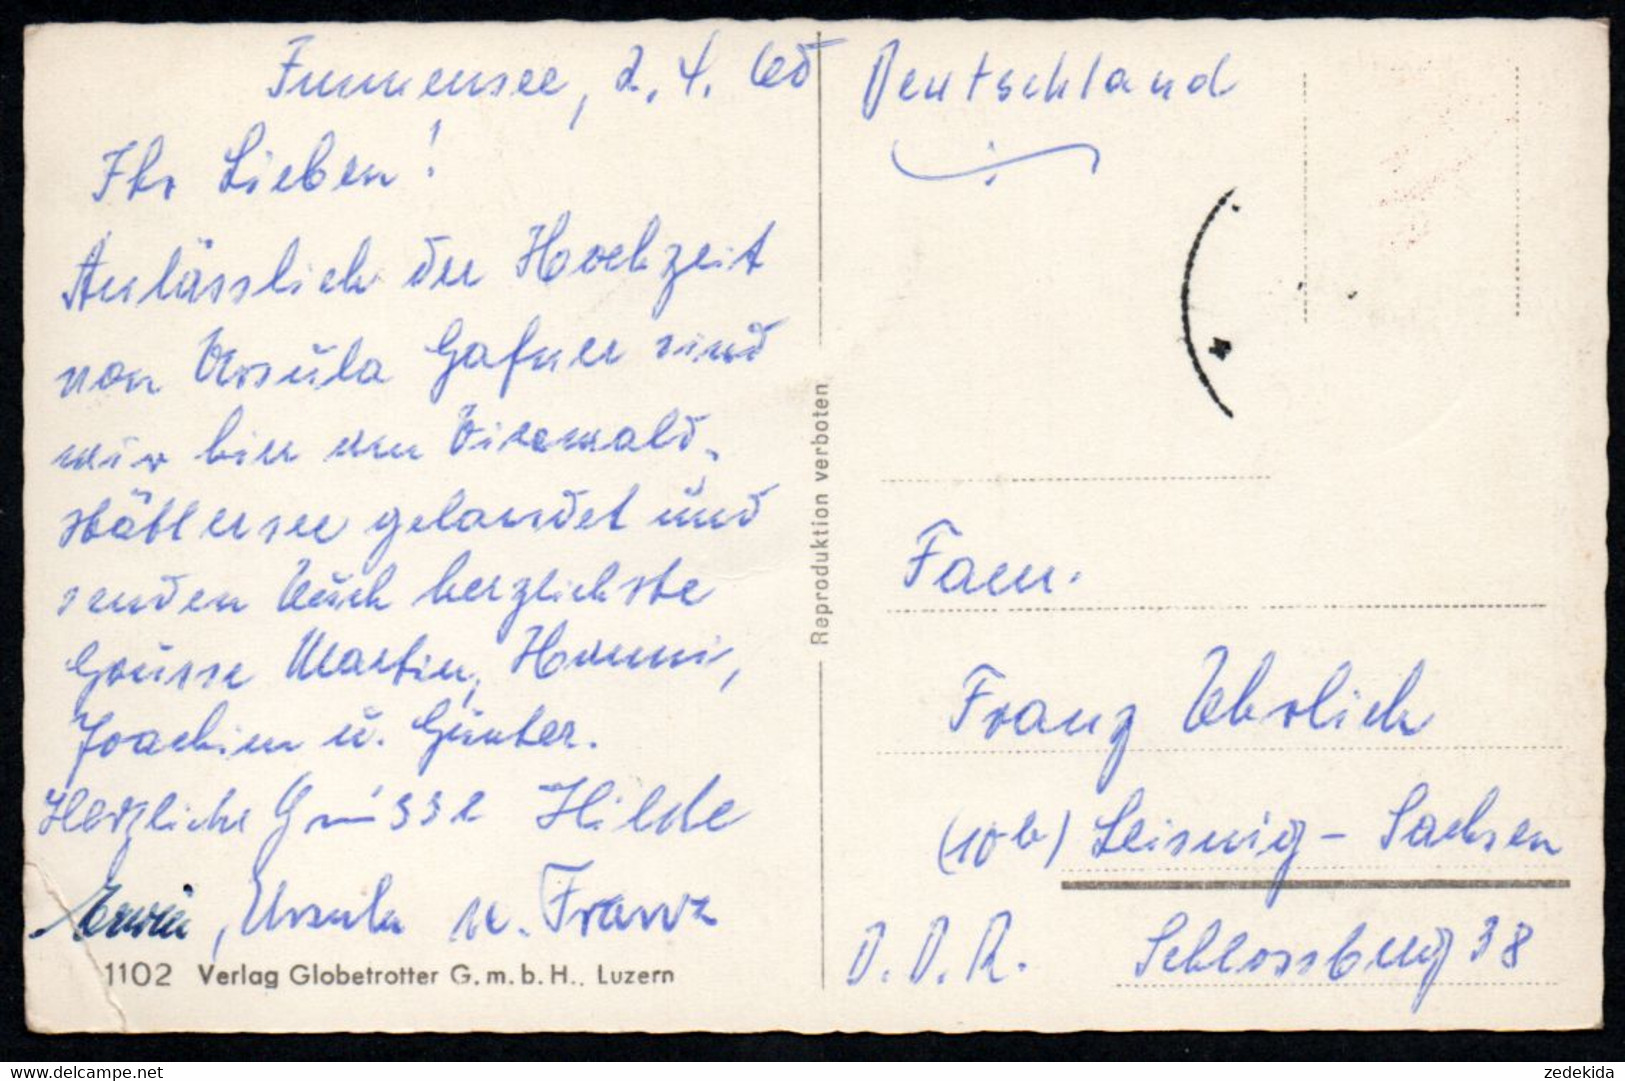 Immensee, 2.4.65
Ihr Lieben!
Anlässlich der Hochzeit
von Ursula Gafner sind
wir hier am Vierwald-
stättersee gelandet und
senden Euch herzlichste
Grüsse Martin, Hanni,
Joachim u. Günter.
Herzliche Grüsse Hilde
Erwin, Ursula u. Franz
1102 Verlag Globetrotter G.m.b.H., Luzern
Reproduktion verboten
Deutschland
Fam.
Franz Ehrlich
(10b) Leisnig - Sachsen
D.D.R. Schlossberg 38
zedekida